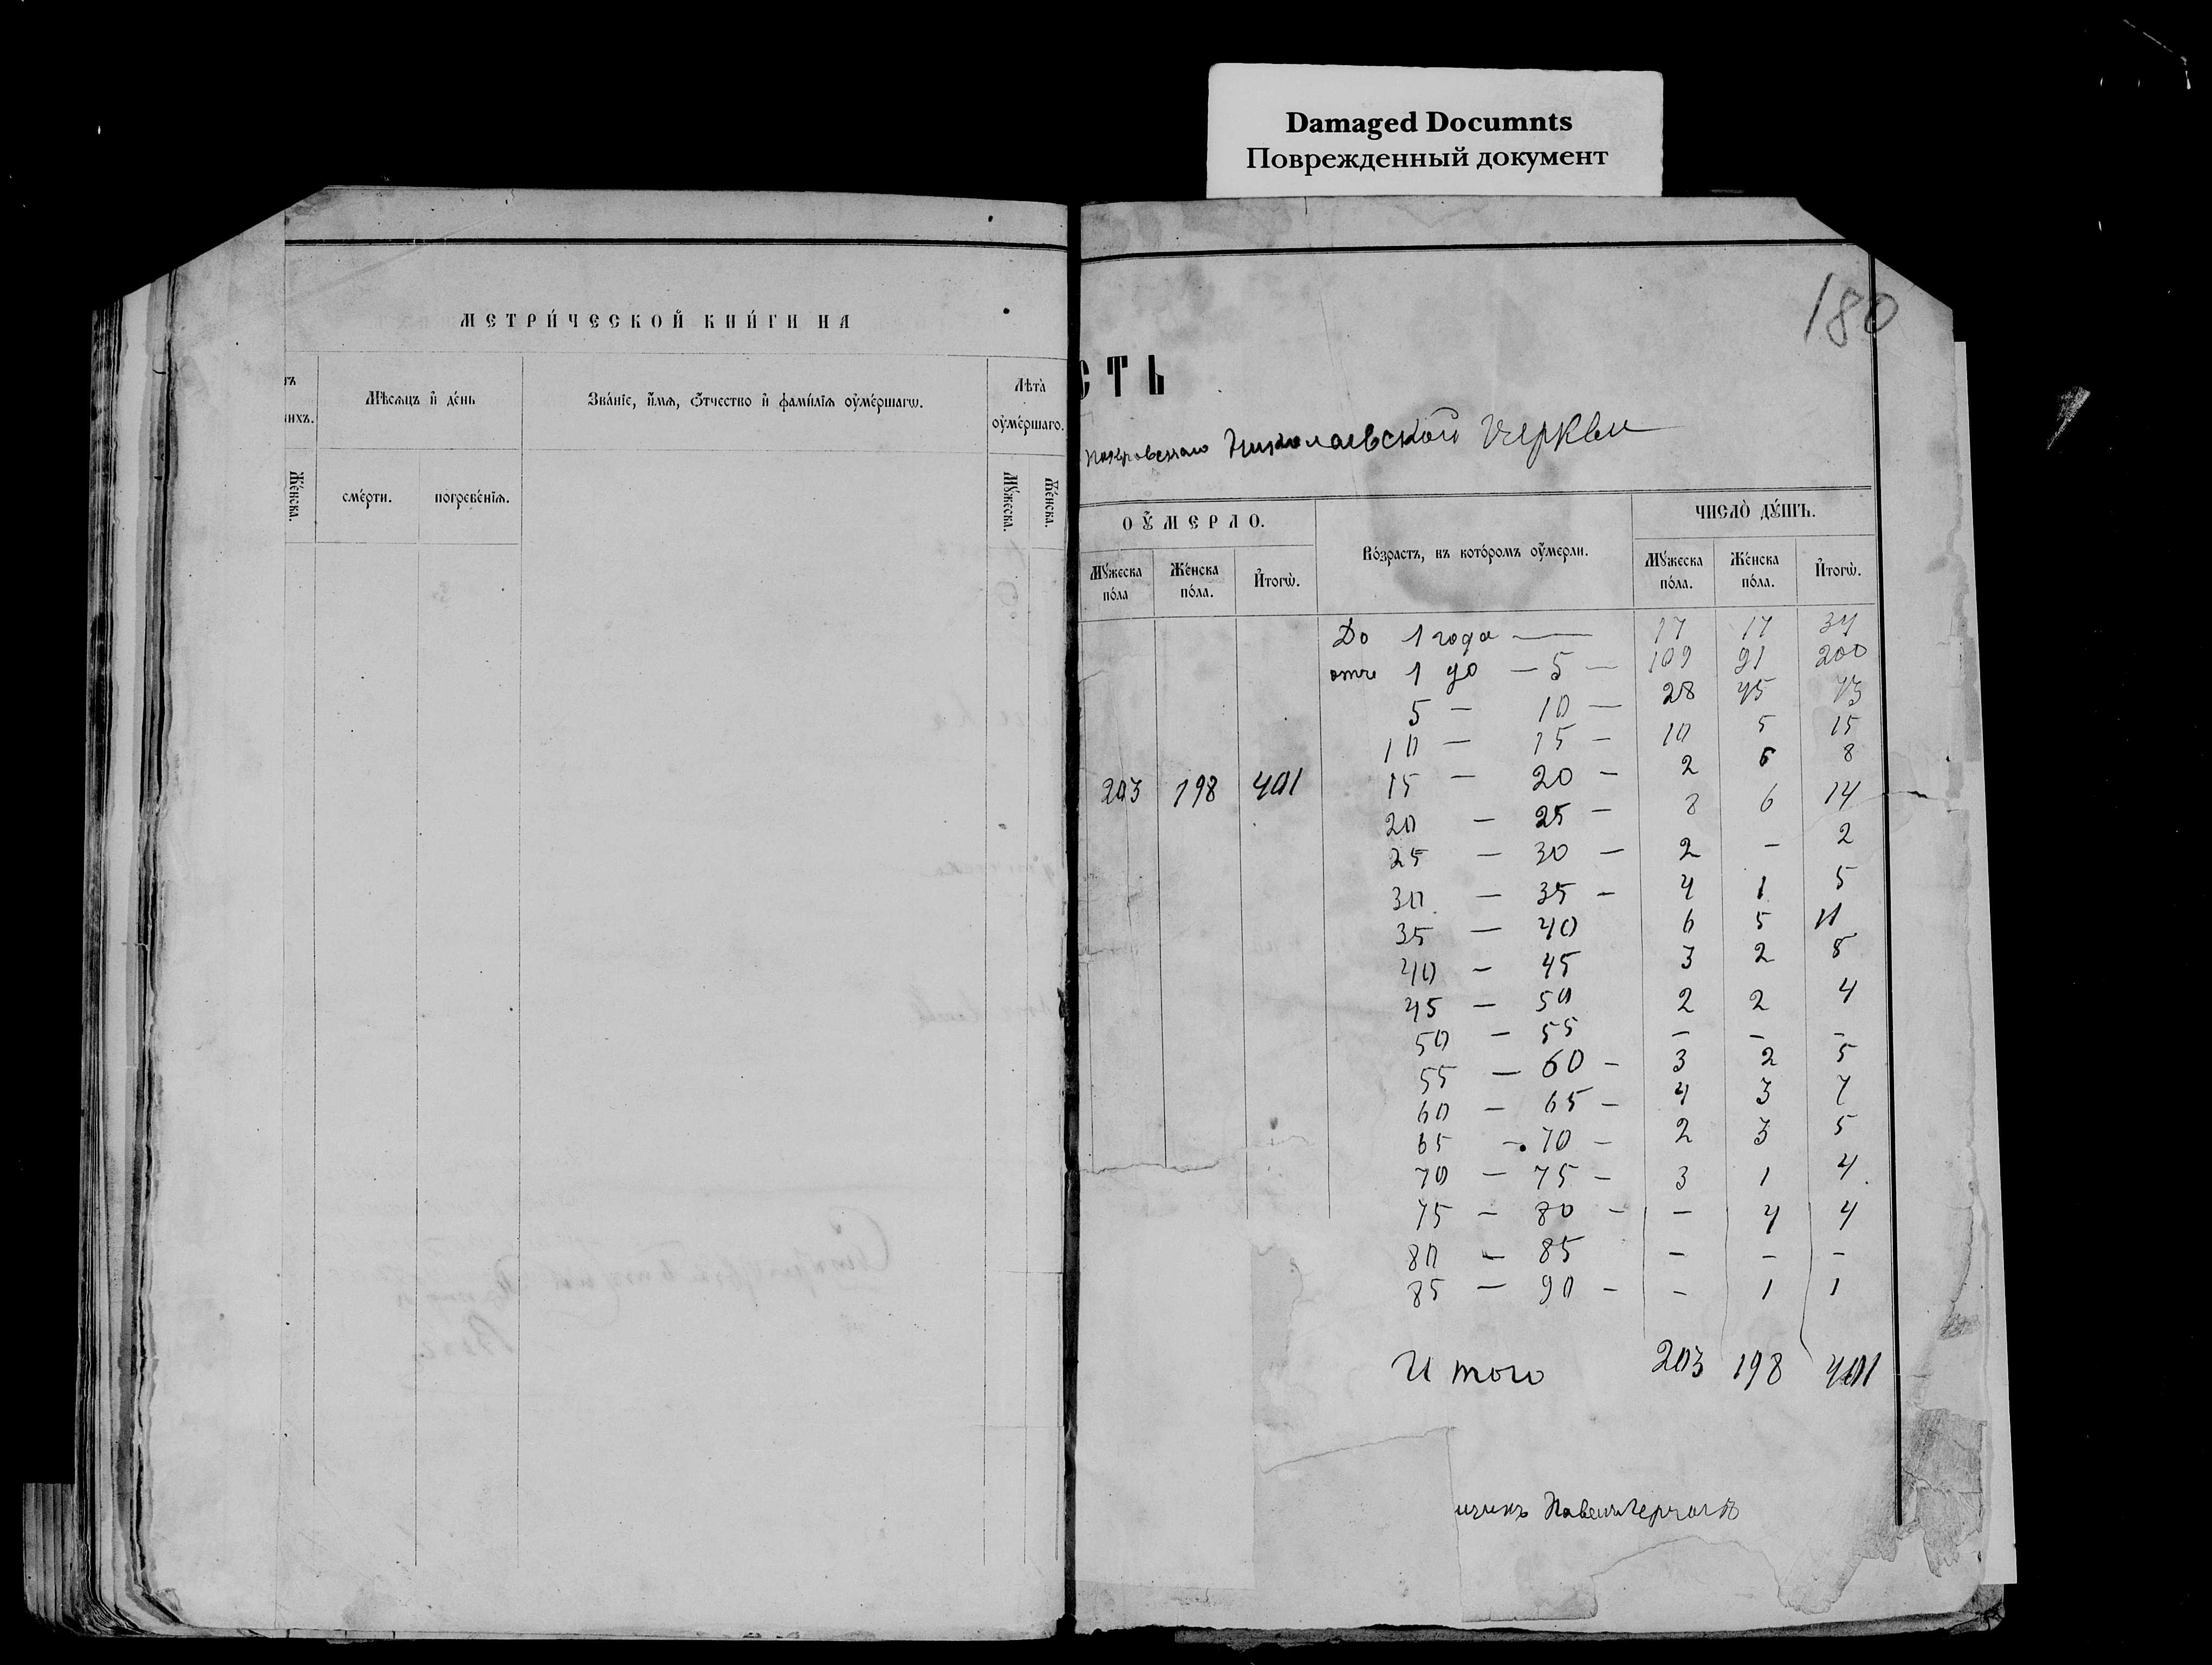 Damaged Documnts
Поврежденный документ
МЕТРИ́ЧЕСКОЙ КНИ́ГИ НА
Мѣ́сѧцъ и҆ де́нь
Зва́нїе, и҆́мѧ, ѻ҆́тчество и҆ фами́лїѧ оу҆ме́ршагѡ.
Лѣта̀
оу҆ме́ршаго.
Же́нска.
сме́рти.
погребе́нїѧ.
Мꙋ́жеска.
Же́нска.
180
СТЬ
Николаевской Церкви
ОУ҆́МЕРЛО.
Во́зрастъ, въ кото́ромъ оу҆́мерли.
ЧИСЛО̀ ДꙊ́ШЪ.
Мꙋ́жеска по́ла
Же́нска по́ла.
И҆тогѡ̀.
Мꙋ́жеска по́ла.
Же́нска по́ла.
И҆тогѡ̀.
До 1 года — 17 17 34
отъ 1 до — 5 — 109 91 200
5 — 10 — 28 45 73
10 — 15 — 10 5 15
203 198 401
15 — 20 — 2 6 8
20 — 25 — 8 6 14
25 — 30 — 2 – 2
30 — 35 — 4 1 5
35 — 40 6 5 11
40 — 45 3 2 5
45 — 50 2 2 4
50 — 55 – – –
55 — 60 — 3 2 5
60 — 65 — 4 3 7
65 — 70 — 2 3 5
70 — 75 — 3 1 4
75 — 80 — – 4 4
80 — 85 – – –
85 — 90 — – 1 1
Итого 203 198 401
Павелъ